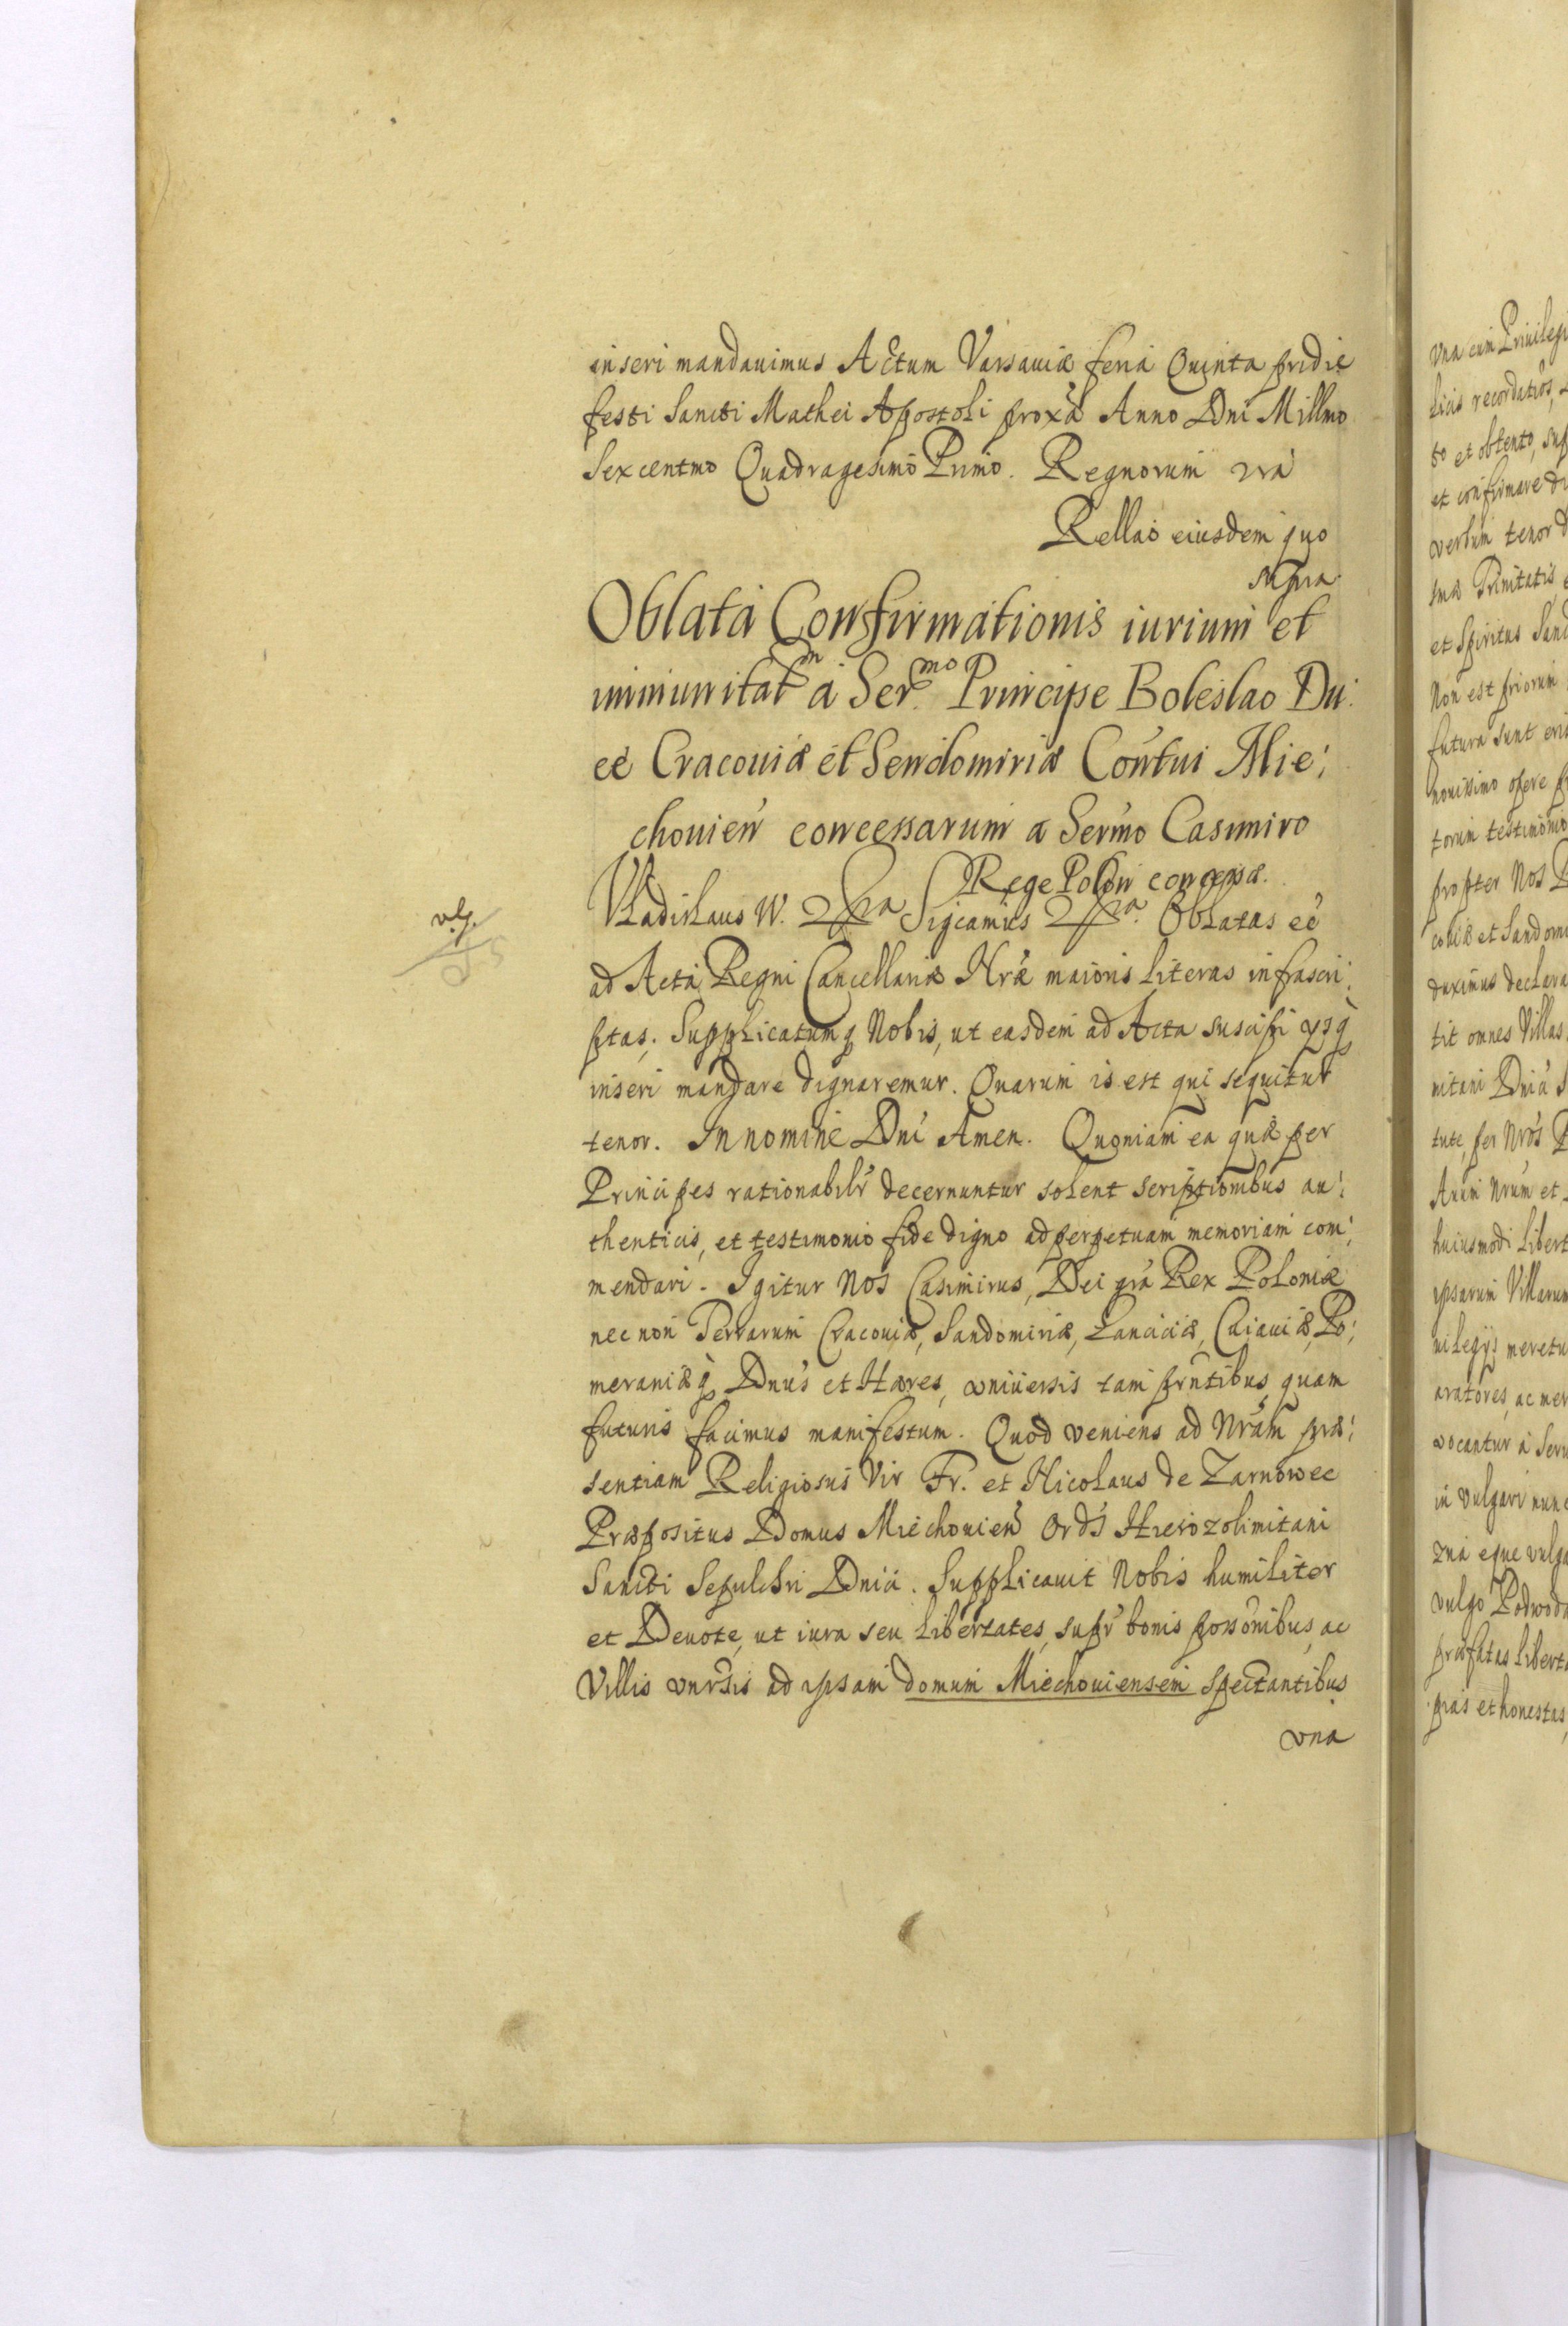 inseri mandauimus Actum Varsauiæ feria Quinta pridie
festi Sancti Mathei Apostoli proxa Anno Dni Millmo
Sexcentmo Quadragesimo Primo. Regnorum vra
Rellao eiusdem quo
supra
Oblata Confirmationis iurium et
immunitatm a Ser.mo Principe Boleslao Du:
ce Cracouiæ et Sendomiriæ Contui Mie:
chouien concessarum a Sermo Casimiro
Rege Polon concessæ.
Vladislaus IV. Sigcamus Oblatas eẽ
v.g.
ad Acta Regni Cancellariæ Nræ maioris literas infrascri:
ptas; Supplicatumq Nobis, ut easdem ad Acta suscipi ysq
inseri mandare dignaremur. Quarum is est qui sequitur
tenor. In nomine Dni Amen. Quoniam ea quæ per
Principes rationabilr decernuntur solent scriptionibus au:
thenticis, et testimonio fide digno ad perpetuam memoriam com:
mendari. Igitur Nos Casimirus, Dei gra Rex Poloniæ
nec non Terrarum Cracouiæ, Sandomiriæ, Lanciciæ, Cuiauiæ, Po:
meraniæq Dnus et Hæres, vniuersis tam prntibus quam
futuris facimus manifestum. Quod veniens ad Nram præ:
sentiam Religiosus Vir Fr. et Nicolaus de Zarnowec
Præpositus Domus Miechouien Ords Hierozolimitani
Sancti Sepulchri Dnici. Supplicauit Nobis humiliter
et Deuote, ut iura seu Libertates, supr bonis possonibus, ac
Villis vnrsis ad ipsam domum Miechouiensem spectantibus
vna
vna cum Priuilegi
bo et obtento, sup
et confirmare di
verbum tenor d
smæ Trinitatis,
et Spiritus Sanc
Non est priorum
futura sunt
nouissimo opere
torum testimonio
propter Nos
couiæ et Sandomi
duximus declara
tit omnes Villas
mitani Dnici S
tute, per Nros P
Anim Nrum et
huiusmodi Libert
ipsarum Villarum
uilegijs meretu
aratores, ac mer
vocantur a Seru
in vulgari nunc
zna eque vulga
vulgo Podwoda
præfatas Liberta
pias et honestas,